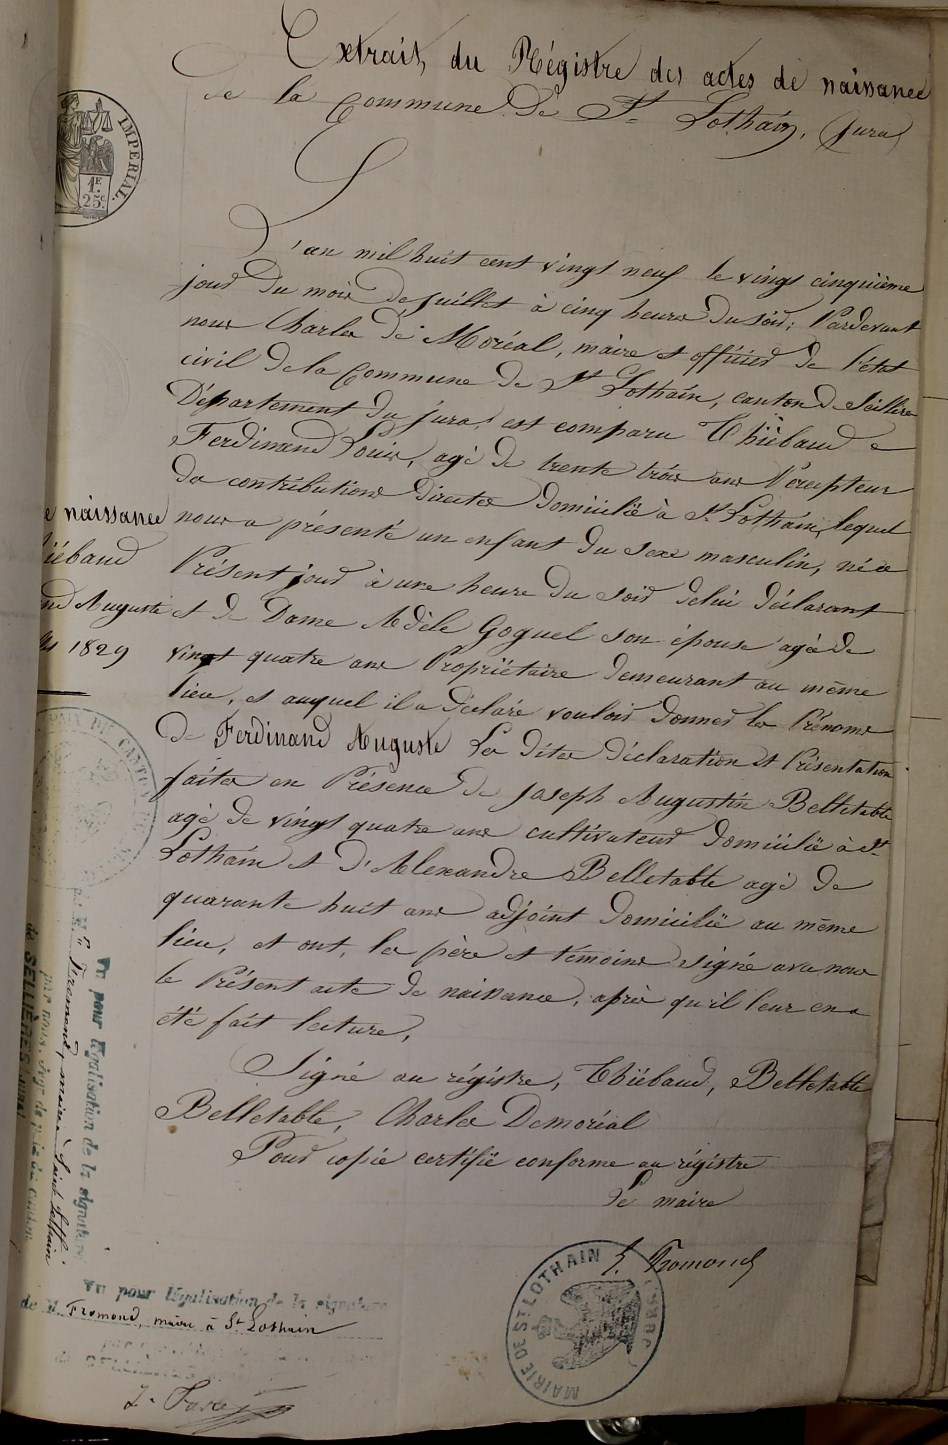 Extrait, du Régistre des actes de naissance
de la Commune De St Lothain, (Jura)
IMPERIAL.
1F
25c.
L'an mil huit cent vingt neuf le vingt cinquième
jour Du mois de Juillet à cinq heures Du soir; Pardevant
nous Charles De Moréal, maire et officier de l'état
civil De la Commune De St Lothain, canton de Sellières
Département Du jura, est comparu Thiébaud
Ferdinand Louis, agé De trente trois ans Percepteur
Des contributions Directes Domicilié à St Lothain, lequel
nous a présenté un enfant Du sexe masculin, né ce
Présent jour à une heure Du soir De lui Déclarant
et De Dame Adèle Goguel son épouse agée De
vingt quatre ans Propriétaire Demeurant au même
lieu, et auquel il a Déclaré vouloir Donner les Prénoms
De Ferdinand Auguste Les Dites Déclaration et Présentation
faites en Présence De Joseph Augustin Belletable
agé De vingt quatre ans cultivateur Domicilié à St
Lothain et D'Alexandre Belletable agé De
quarante huit ans adjoint Domicilié au même
lieu, et ont, les père et témoins signé avec nous
le Présent acte De naissance, après qu'il leur en a
été fait lecture,
Signé au régistre, Thiébaud, Belletable
Belletable, Charles Demoréal
Pour copie certifié conforme au régistre
Le maire
Fromond
MAIRIE DE ST LOTHAIN (JURA)
e naissance
iébaud
nd Auguste
1829
PAIX DU CANTON
Vu pour légalisation de la signature
de Mr Fromond, maire à Saint Lothain
par nous, Juge de paix du Canton
de SELLIÈRES (Jura)
Vu pour légalisation de la signature
de M. Fromond, maire à St Lothain
de SELLIÈRES